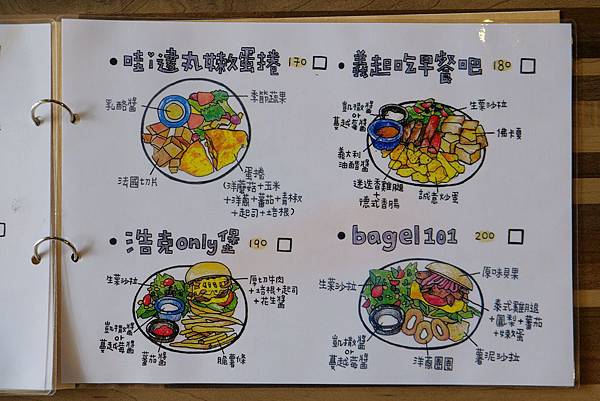 哇i達丸嫩蛋捲 170
乳酪醬
季節蔬果
法國切片
蛋捲
(洋蘑菇+玉米
+洋蔥+蕃茄+青椒
+起司+培根)
義起吃早餐吧 180
凱撒醬
or
蔓越莓醬
生菜沙拉
佛卡夏
義大利
油醋醬
迷迭香雞腿
+
德式香腸
誠意炒蛋
浩克only堡 190
生菜沙拉
厚切牛肉
+培根+起司
+花生醬
凱撒醬
or
蔓越莓醬
蕃茄醬
脆薯條
bagel101 200
生菜沙拉
原味貝果
泰式雞腿
+鳳梨+蕃茄
+嫩蛋
凱撒醬
or
蔓越莓醬
洋蔥圈圈
薯泥沙拉